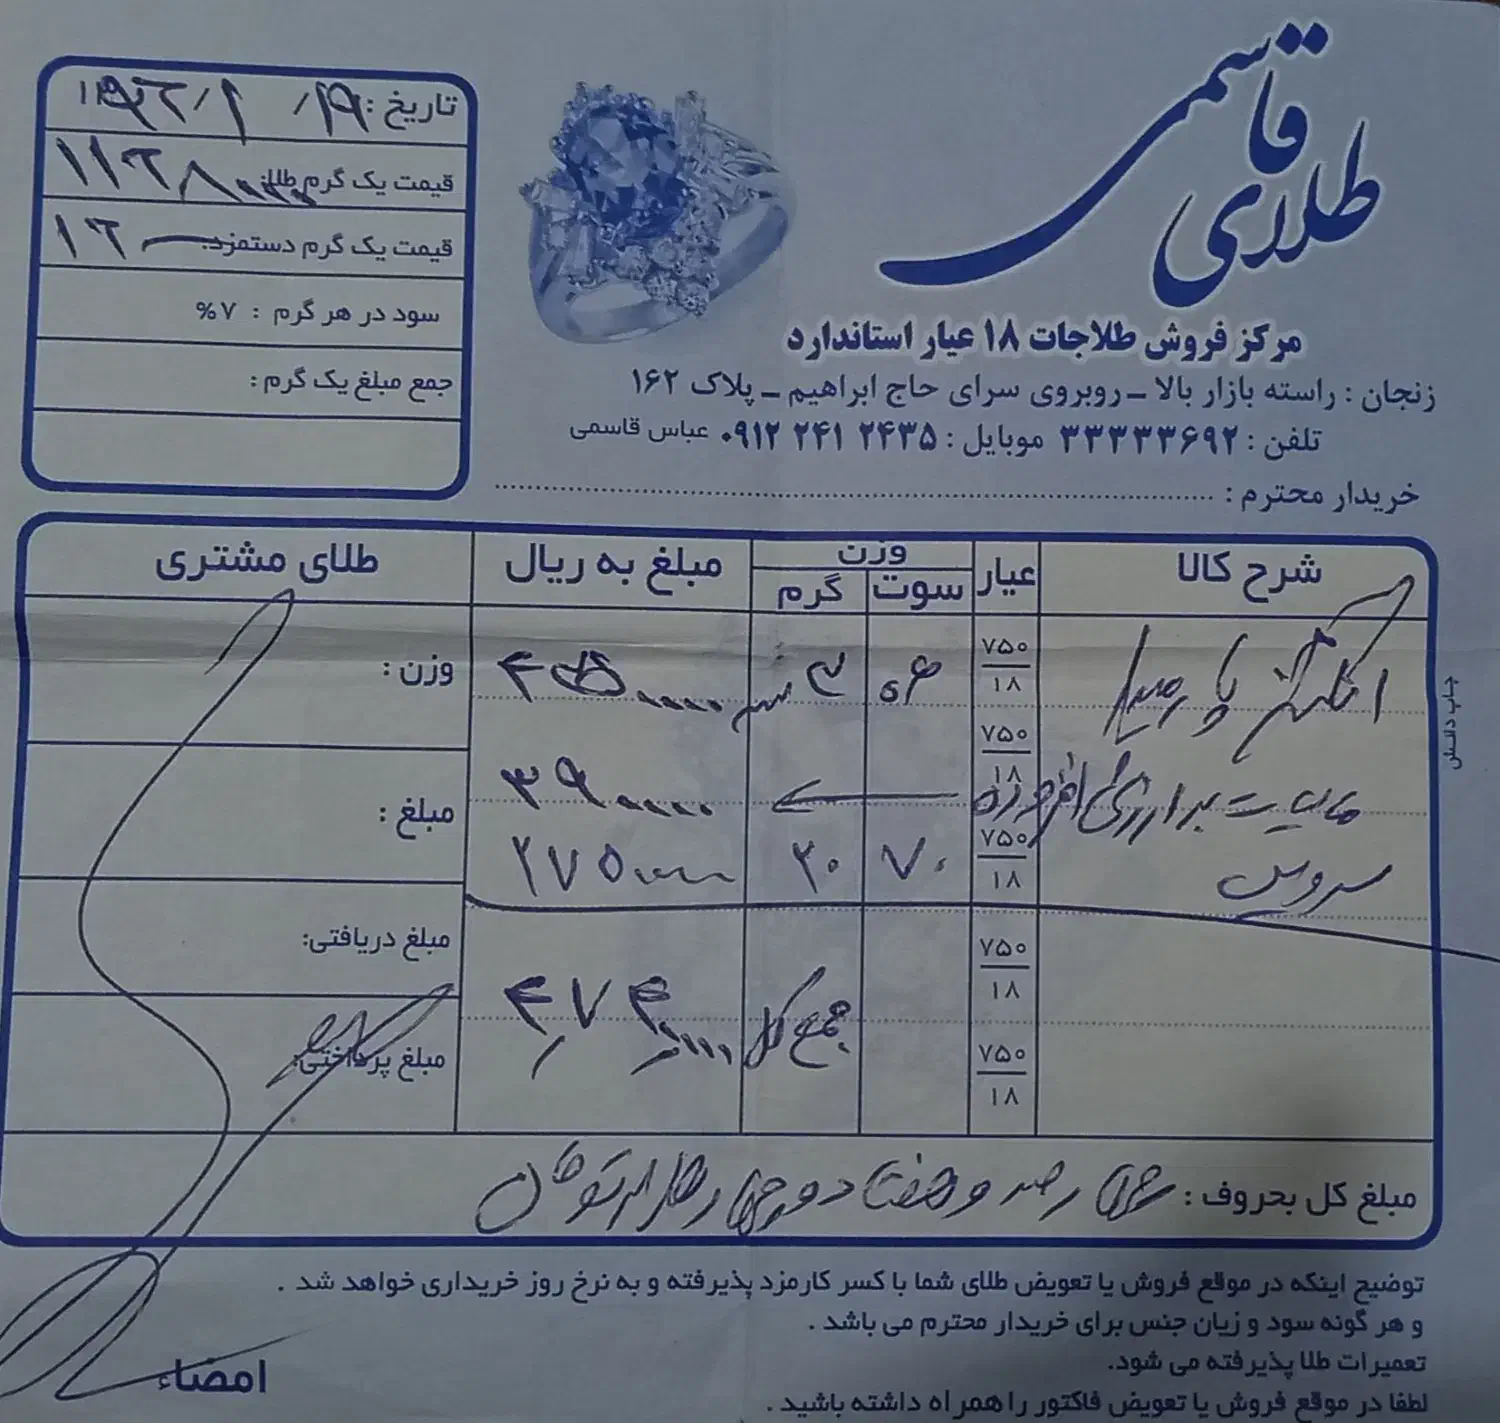 طلای قاسمی
مرکز فروش طلاجات ۱۸ عیار استاندارد
زنجان : راسته بازار بالا ـ روبروی سرای حاج ابراهیم ـ پلاک ۱۶۲
تلفن : ۳۳۳۳۳۶۹۲ موبایل : ۰۹۱۲ ۲۴۱ ۲۴۳۵ عباس قاسمی
خریدار محترم :
تاریخ :
قیمت یک گرم طلا:
قیمت یک گرم دستمزد:
سود در هر گرم : ۷%
جمع مبلغ یک گرم :
شرح کالا عیار وزن مبلغ به ریال طلای مشتری
سوت گرم
۷۵۰
۱۸
وزن :
۷۵۰
۱۸
مالیات بر ارزش افزوده ۳۹۰۰۰۰۰
مبلغ :
سرویس ۷۵۰ ۷۰ ۲۰
۱۸
مبلغ دریافتی:
۷۵۰
۱۸
جمع کل
مبلغ پرداختی:
۷۵۰
۱۸
مبلغ کل بحروف : چهارصد و هفتاد و چهار هزار تومان
توضیح اینکه در موقع فروش یا تعویض طلای شما با کسر کارمزد پذیرفته و به نرخ روز خریداری خواهد شد .
و هر گونه سود و زیان جنس برای خریدار محترم می باشد .
تعمیرات طلا پذیرفته می شود.
لطفا در موقع فروش یا تعویض فاکتور را همراه داشته باشید .
امضاء